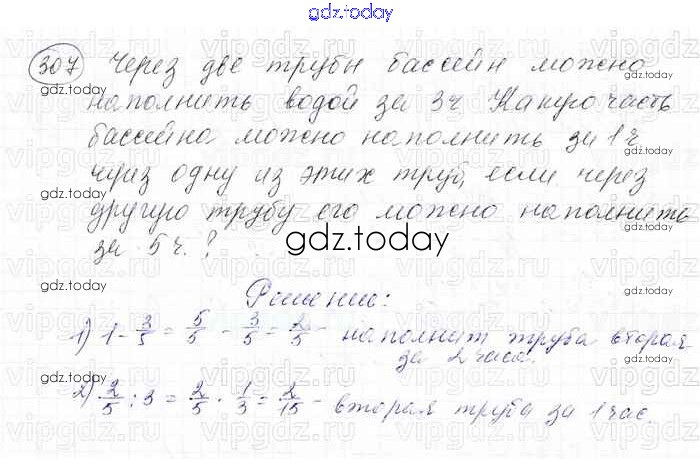 gdz.today
307 Через две трубы бассейн можно
наполнить водой за 3ч Какую часть
бассейна можно наполнить за 1ч
через одну из этих труб, если через
другую трубу его можно наполнить
за 5ч.?
gdz.today
Решение:
1) 1 - 3/5 = 5/5 - 3/5 = 2/5 - наполнит труба вторая
за 2 часа.
2) 2/5 : 3 = 2/5 · 1/3 = 2/15 - вторая труба за 1 час.